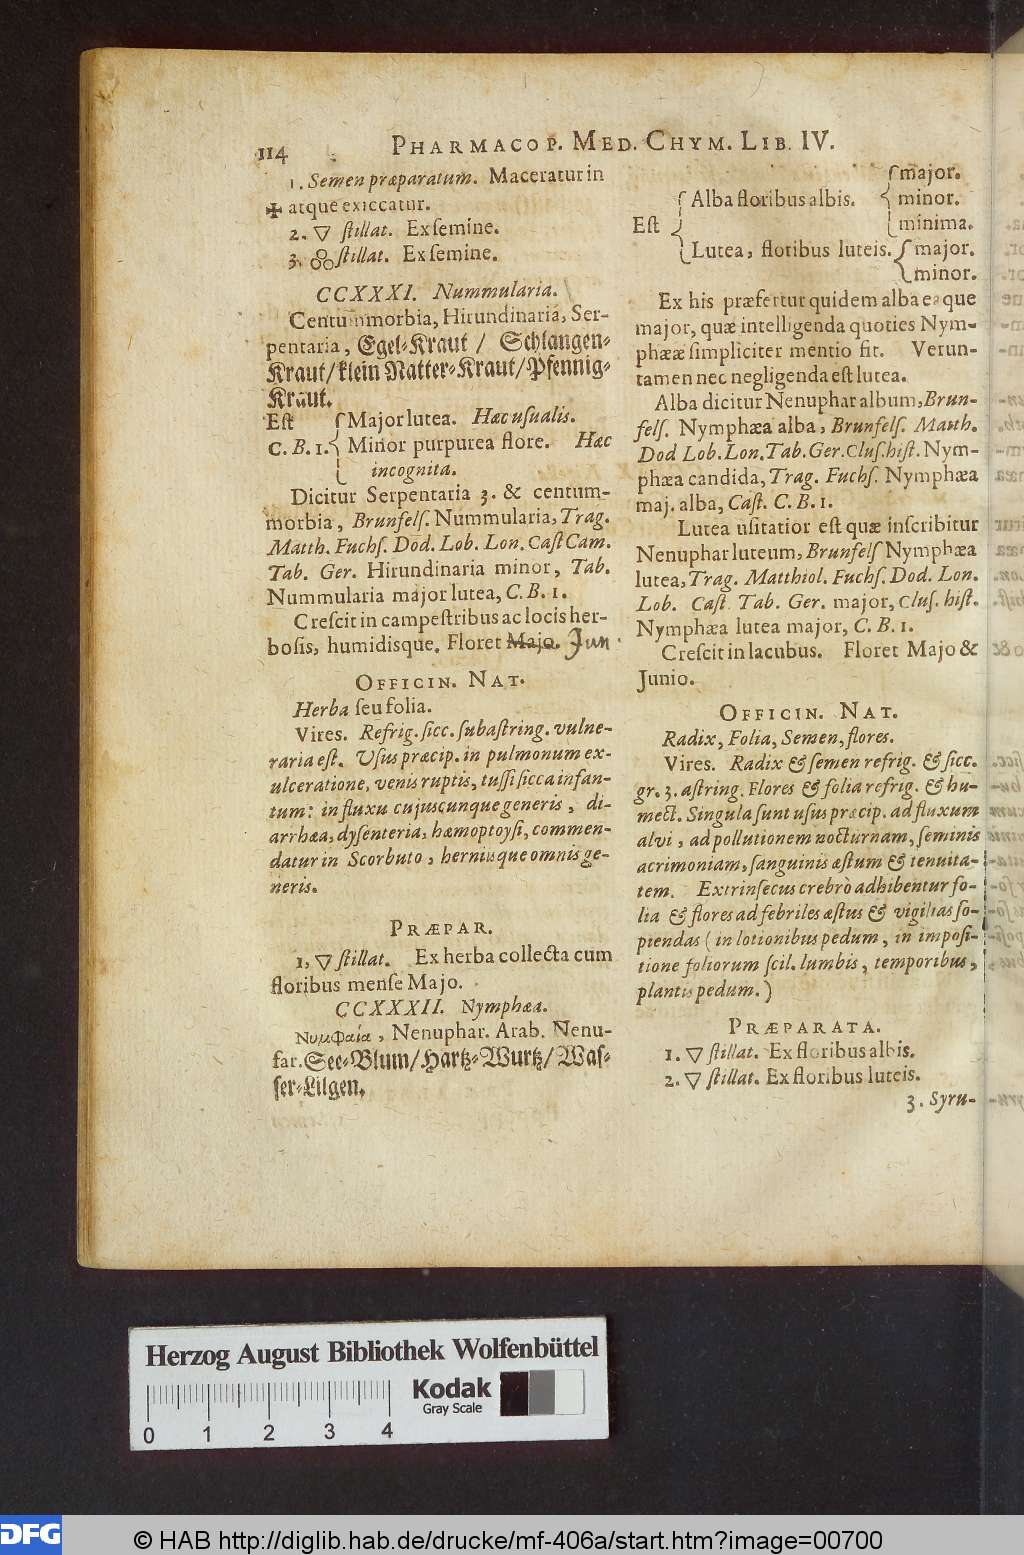 114 PHARMACOP. MED. CHYM. LIB. IV.
1. Semen præparatum. Maceratur in
✠ atque exiccatur.
2. 🜄 ſtillat. Ex ſemine.
3. ſtillat. Ex ſemine.
CCXXXI. Nummularia.
Centummorbia, Hirundinaria, Ser-
pentaria, Egel-Kraut / Schlangen-
Kraut/klein Natter-Kraut/Pfennig-
Kraut.
Eſt { Major lutea. Hæc uſualis.
C. B. 1. { Minor purpurea flore. Hæc
incognita.
Dicitur Serpentaria 3. & centum-
morbia, Brunfelſ. Nummularia, Trag.
Matth. Fuchſ. Dod. Lob. Lon. Caſt Cam.
Tab. Ger. Hirundinaria minor, Tab.
Nummularia major lutea, C. B. 1.
Creſcit in campeſtribus ac locis her-
boſis, humidisque. Floret Majo. Jun.
OFFICIN. NAT.
Herba ſeu folia.
Vires. Refrig. ſicc. ſubaſtring. vulne-
raria eſt. Uſus præcip. in pulmonum ex-
ulceratione, venis ruptis, tuſſi ſicca infan-
tum: in fluxu cujuscunque generis, di-
arrhæa, dyſenteria, hæmoptoyſi, commen-
datur in Scorbuto, herniisque omnis ge-
neris.
PRÆPAR.
1, 🜄 ſtillat. Ex herba collecta cum
floribus menſe Majo.
CCXXXII. Nymphæa.
Νυμφαία, Nenuphar. Arab. Nenu-
far. See-Blum/Hartz-Wurtz/Waſ-
ſer-Lilgen.
Eſt { Alba floribus albis. { major.
minor.
minima.
Lutea, floribus luteis. { major.
minor.
Ex his præfertur quidem alba eaque
major, quæ intelligenda quoties Nym-
phææ ſimpliciter mentio fit. Verun-
tamen nec negligenda eſt lutea.
Alba dicitur Nenuphar album, Brun-
felſ. Nymphæa alba, Brunfelſ. Matth.
Dod Lob. Lon. Tab. Ger. Cluſ. hiſt. Nym-
phæa candida, Trag. Fuchſ. Nymphæa
maj. alba, Caſt. C. B. 1.
Lutea uſitatior eſt quæ inſcribitur
Nenuphar luteum, Brunfelſ Nymphæa
lutea, Trag. Matthiol. Fuchſ. Dod. Lon.
Lob. Caſt Tab. Ger. major, Cluſ. hiſt.
Nymphæa lutea major, C. B. 1.
Creſcit in lacubus. Floret Majo &
Junio.
OFFICIN. NAT.
Radix, Folia, Semen, flores.
Vires. Radix & ſemen refrig. & ſicc.
gr. 3. aſtring. Flores & folia refrig. & hu-
mect. Singula ſunt uſus præcip. ad fluxum
alvi, ad pollutionem nocturnam, ſeminis
acrimoniam, ſanguinis æſtum & tenuita-
tem. Extrinſecus crebrò adhibentur fo-
lia & flores ad febriles æſtus & vigilias ſo-
piendas (in lotionibus pedum, in impoſi-
tione foliorum ſcil. lumbis, temporibus,
plantis pedum.)
PRÆPARATA.
1. 🜄 ſtillat. Ex floribus albis.
2. 🜄 ſtillat. Ex floribus luteis.
3. Syru-
Herzog August Bibliothek Wolfenbüttel
Kodak
Gray Scale
0 1 2 3 4
DFG
© HAB http://diglib.hab.de/drucke/mf-406a/start.htm?image=00700